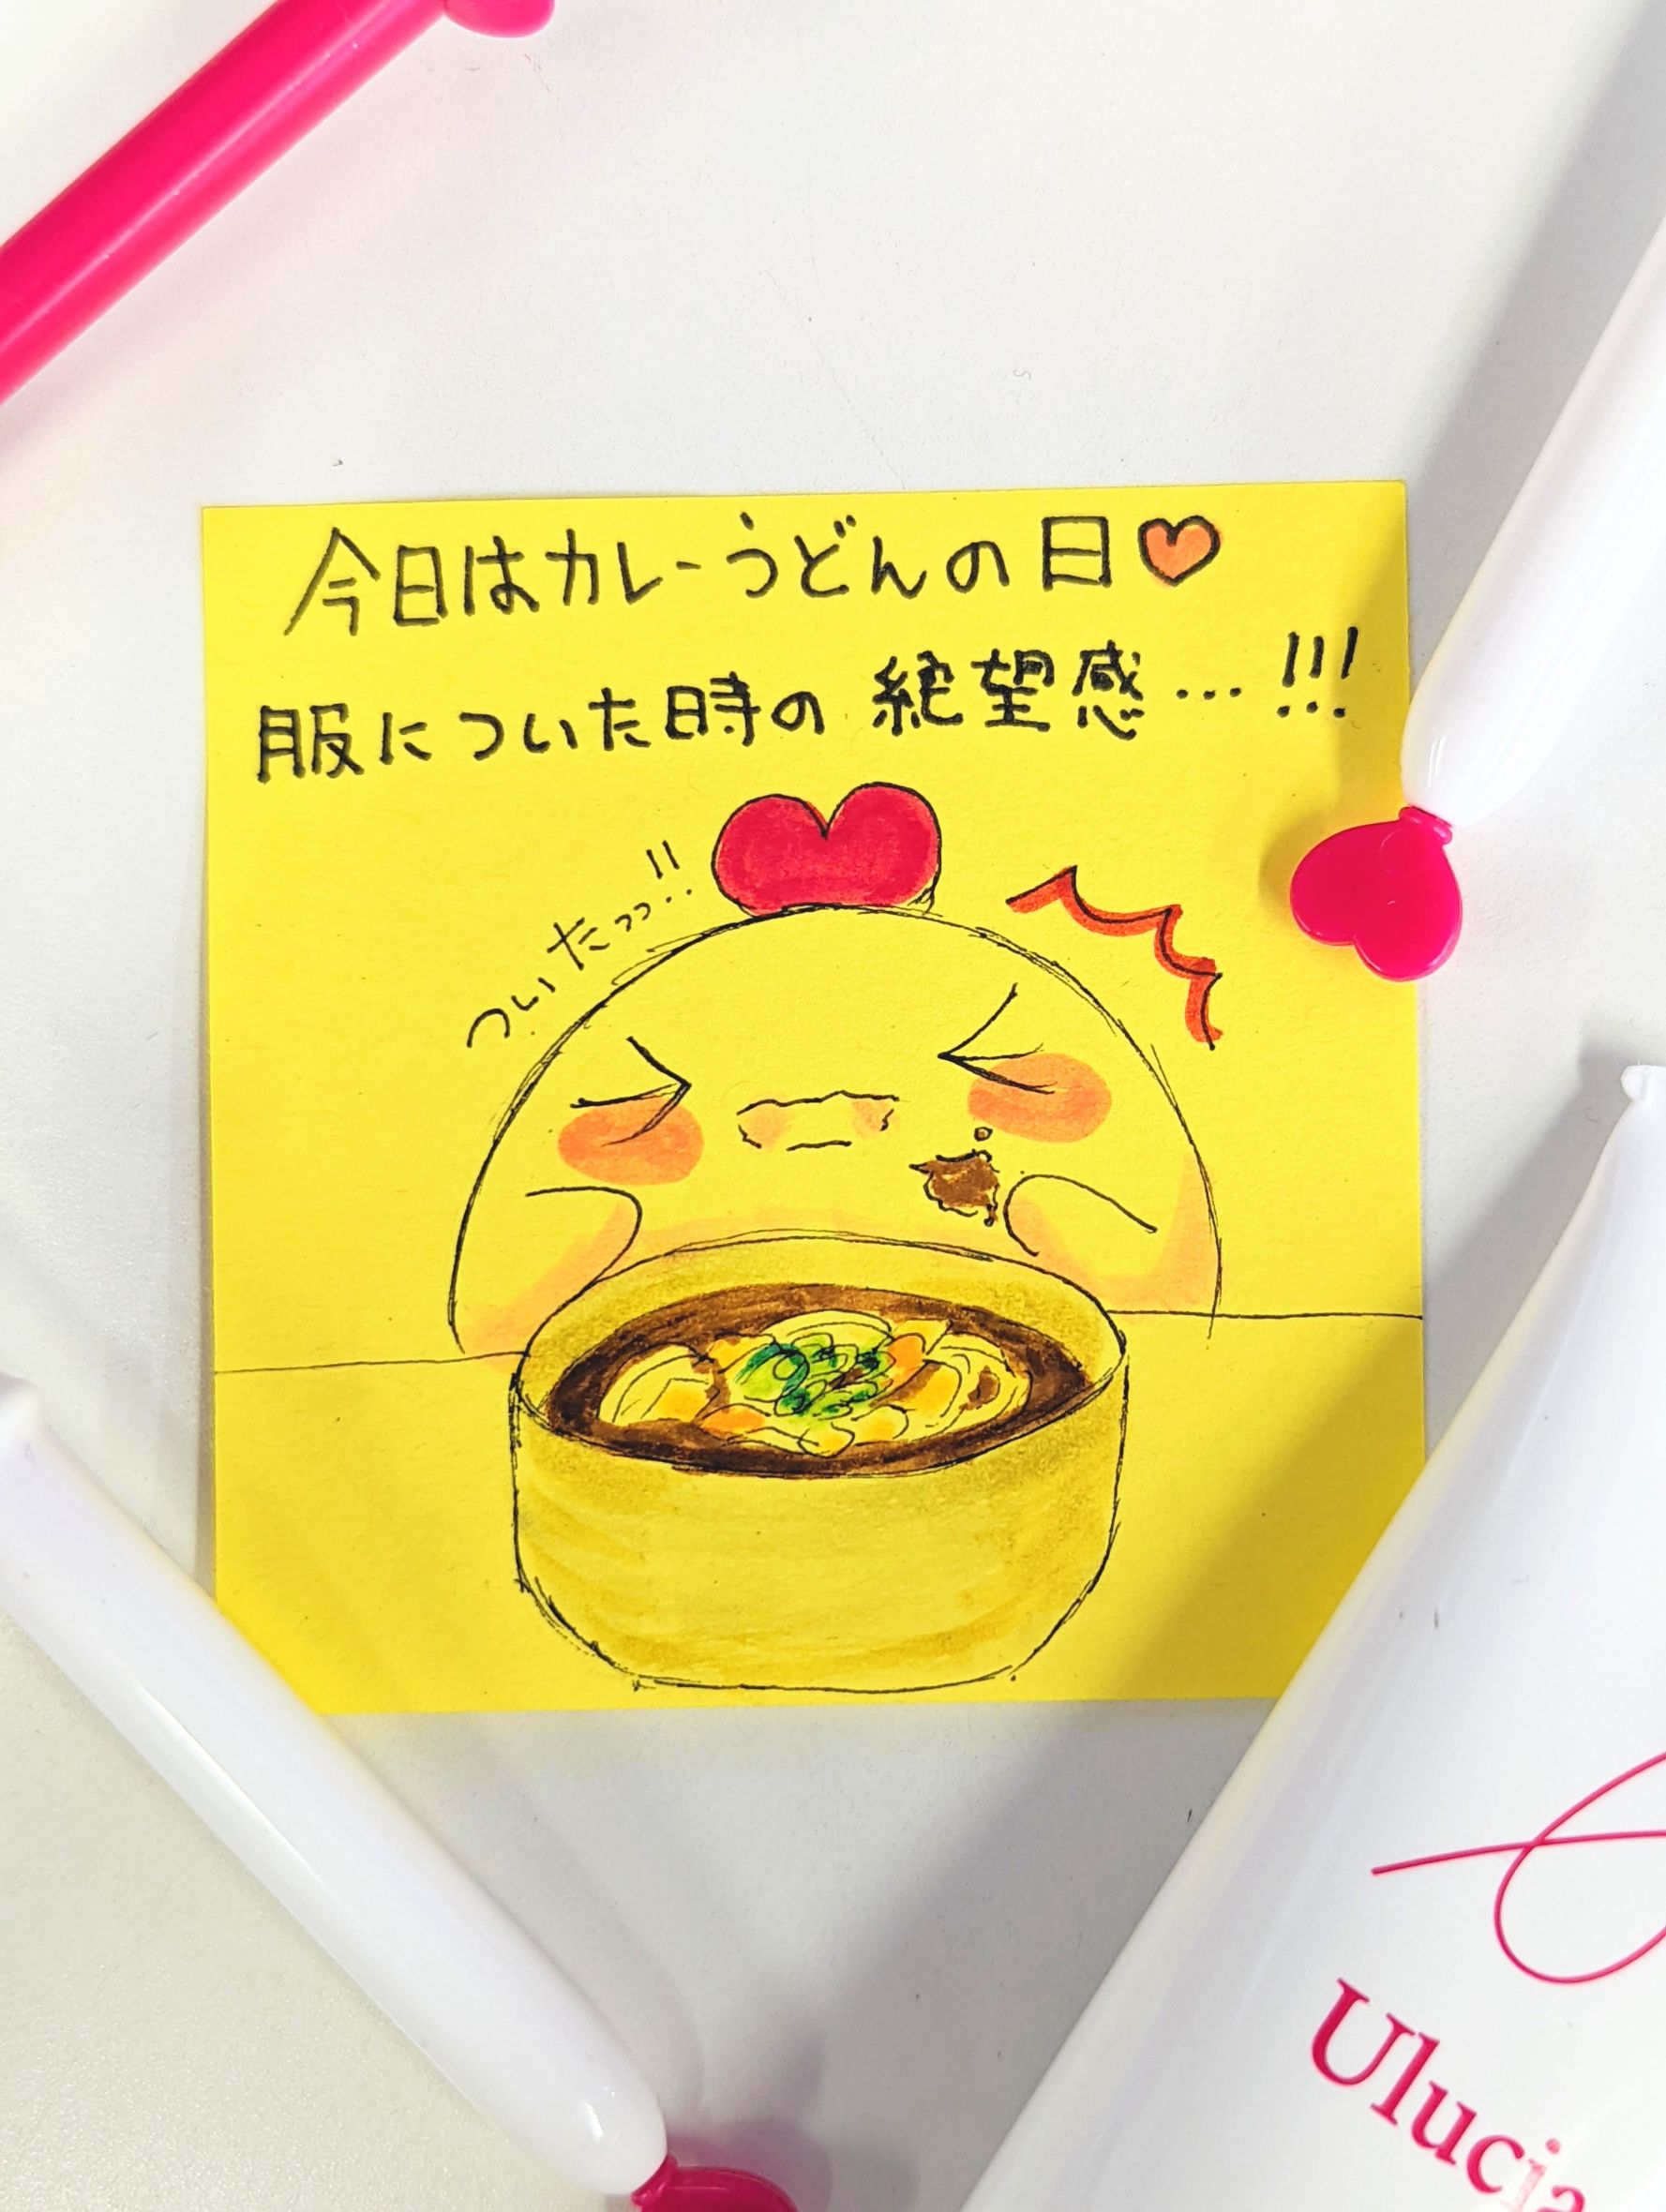 今日はカレーうどんの日♡
服についた時の絶望感…!!!
ついたっっ!!
Ulucia